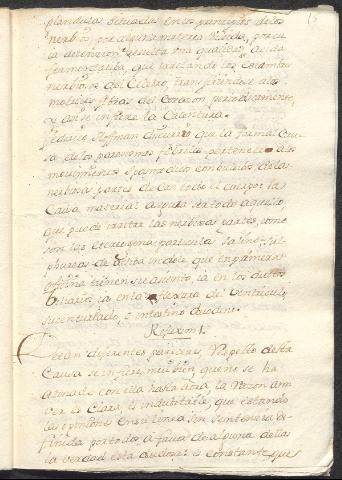 glandulas situadas en los principios de los
nerbios, por alguna materia viscida, por cu
la detencion resulta una qualidad acida
fermentatiba, que
nerbios del Celebro, transfiriendose a las
motrices fibras del Corazon periodicamente,
y asi se infiere la Calentura.
Federico Hoffman discurrio que la prima Cau
sa de los paroxismos febriles pertenece a los
movimientos spasmodico combulsibos, de las
nerbiosas partes de casi todo el cuerpo: la
Causa material ser todo aquello
que puede irritar las nerbiosas partes, como
son las etereogeneas particulas salino-sul-
phureas de indole que en primera
oficina tienen su asiento, ia en los ductos
biliarios ia en la flexura del ventriculo,
sucenturiado, o intestino duodeno.
Reflexion 1.
diferentes pareceres, respecto de esta
Causa se infiere mui bien, que no se ha
atinado con ella hasta aora, la razon a mi
ver es Clara, es indubitable, que estando
las opiniones en su linea, sin sentencia di-
finida por todos a favor de alguna de ellas
la verdad esta dudosa: es constante que